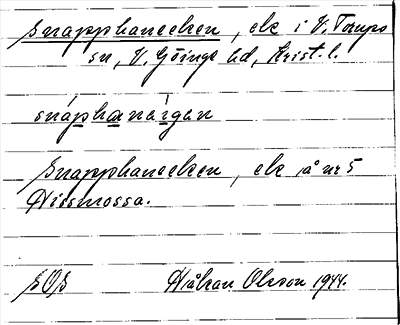 Snapphaneeken, ek i V. Torups
sn, V. Göinge hd, Krist. l.
snáphanèigen
Snapphaneeken, ek å nr 5
Hissmossa.
SOS Håkan Olsson 1944.